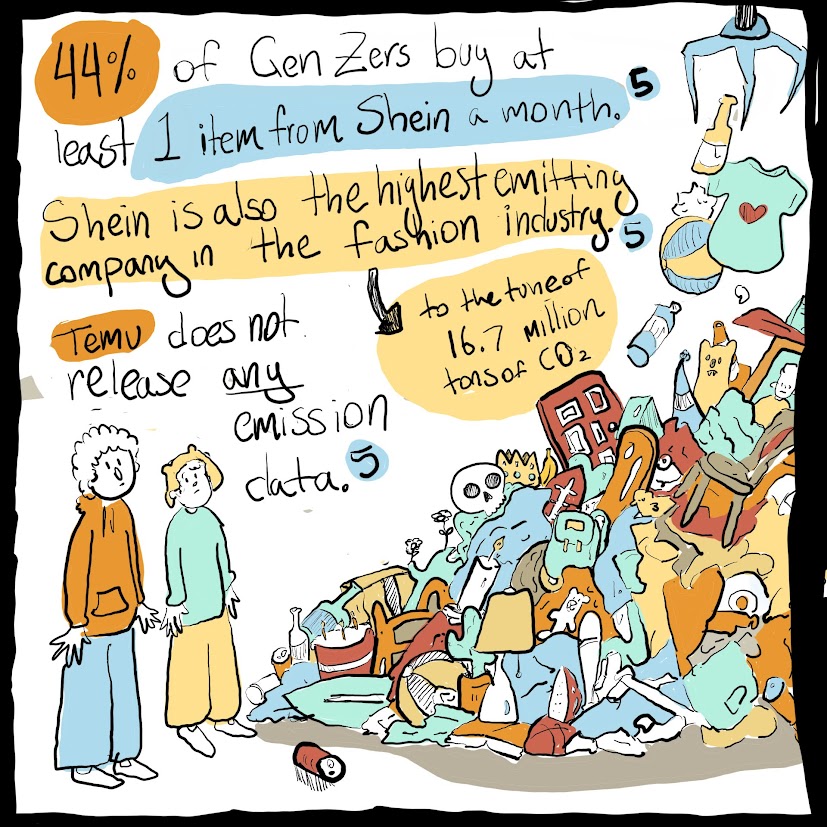 44% of Gen Zers buy at
least 1 item from Shein a month. 5
Shein is also the highest emitting
company in the fashion industry. 5
to the tune of
16.7 million
tons of CO₂
Temu does not
release any
emission
data. 5